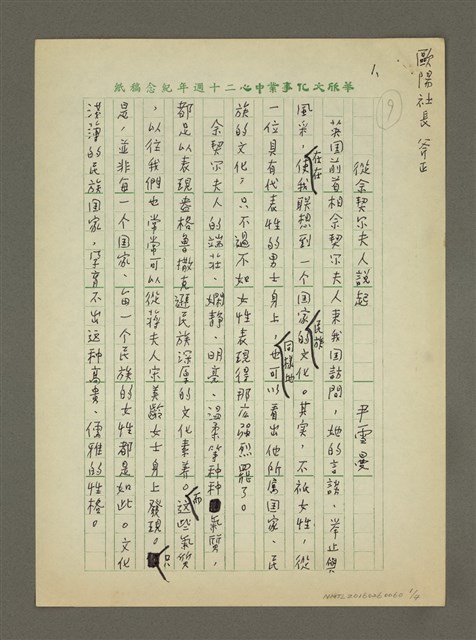 歐陽社長 斧正
1、
華脤文化事業中心二十週年紀念稿紙
9
從佘契尔夫人說起
尹雪曼
英国前首相佘契尔夫人来我国訪問，她的言談、举止與
風采，在在使我联想到一个国家民族的文化。其实，不祇女性，從
一位具有代表性的男士身上，同樣的也可以看出他所属国家、民
族的文化，只不过不如女性表現得那应强烈罷了。
佘契尔夫人的端莊、嫻静、明亮、温柔等种种氣質，
都足以表現盎格鲁撒克遜民族深厚的文化素养。而这些氣質
，以往我們也常常可以從蒋夫人宋美齡女士身上發現。只
是，並非每一个国家、每一个民族的女性都是如此。文化
浅薄的民族国家，孕育不出这种高贵、儒雅的性格。
NMTL20150060060 1/4